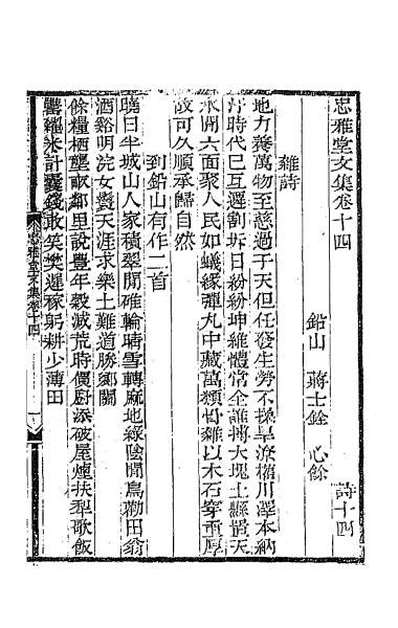 忠雅堂文集卷十四
鉛山 蔣士銓 心餘 詩十四
雜詩
地力養萬物至慈過于天但任發生勞不操旱潦權川澤本納
汙時代已互遷割坼日紛紛坤維體常全誰摶大塊土懸
永開六面聚人民如蟻緣彈丸中藏萬類骨雜以木石穿重厚
故可久順承歸自然
到鉛山有作二首
曉日半城山人家積翠間碓輪晴雪轉麻地綠陰閒鳥勸田翁
酒谿明浣女鬟天涯求樂土難道勝鄉關
餘糧栖壟畝鄰里說豐年穀減荒時價廚添破屋煙扶犁歌飯
罌糴米計囊錢敢笑樊遲稼躬耕少薄田
忠雅堂文集卷十四 一